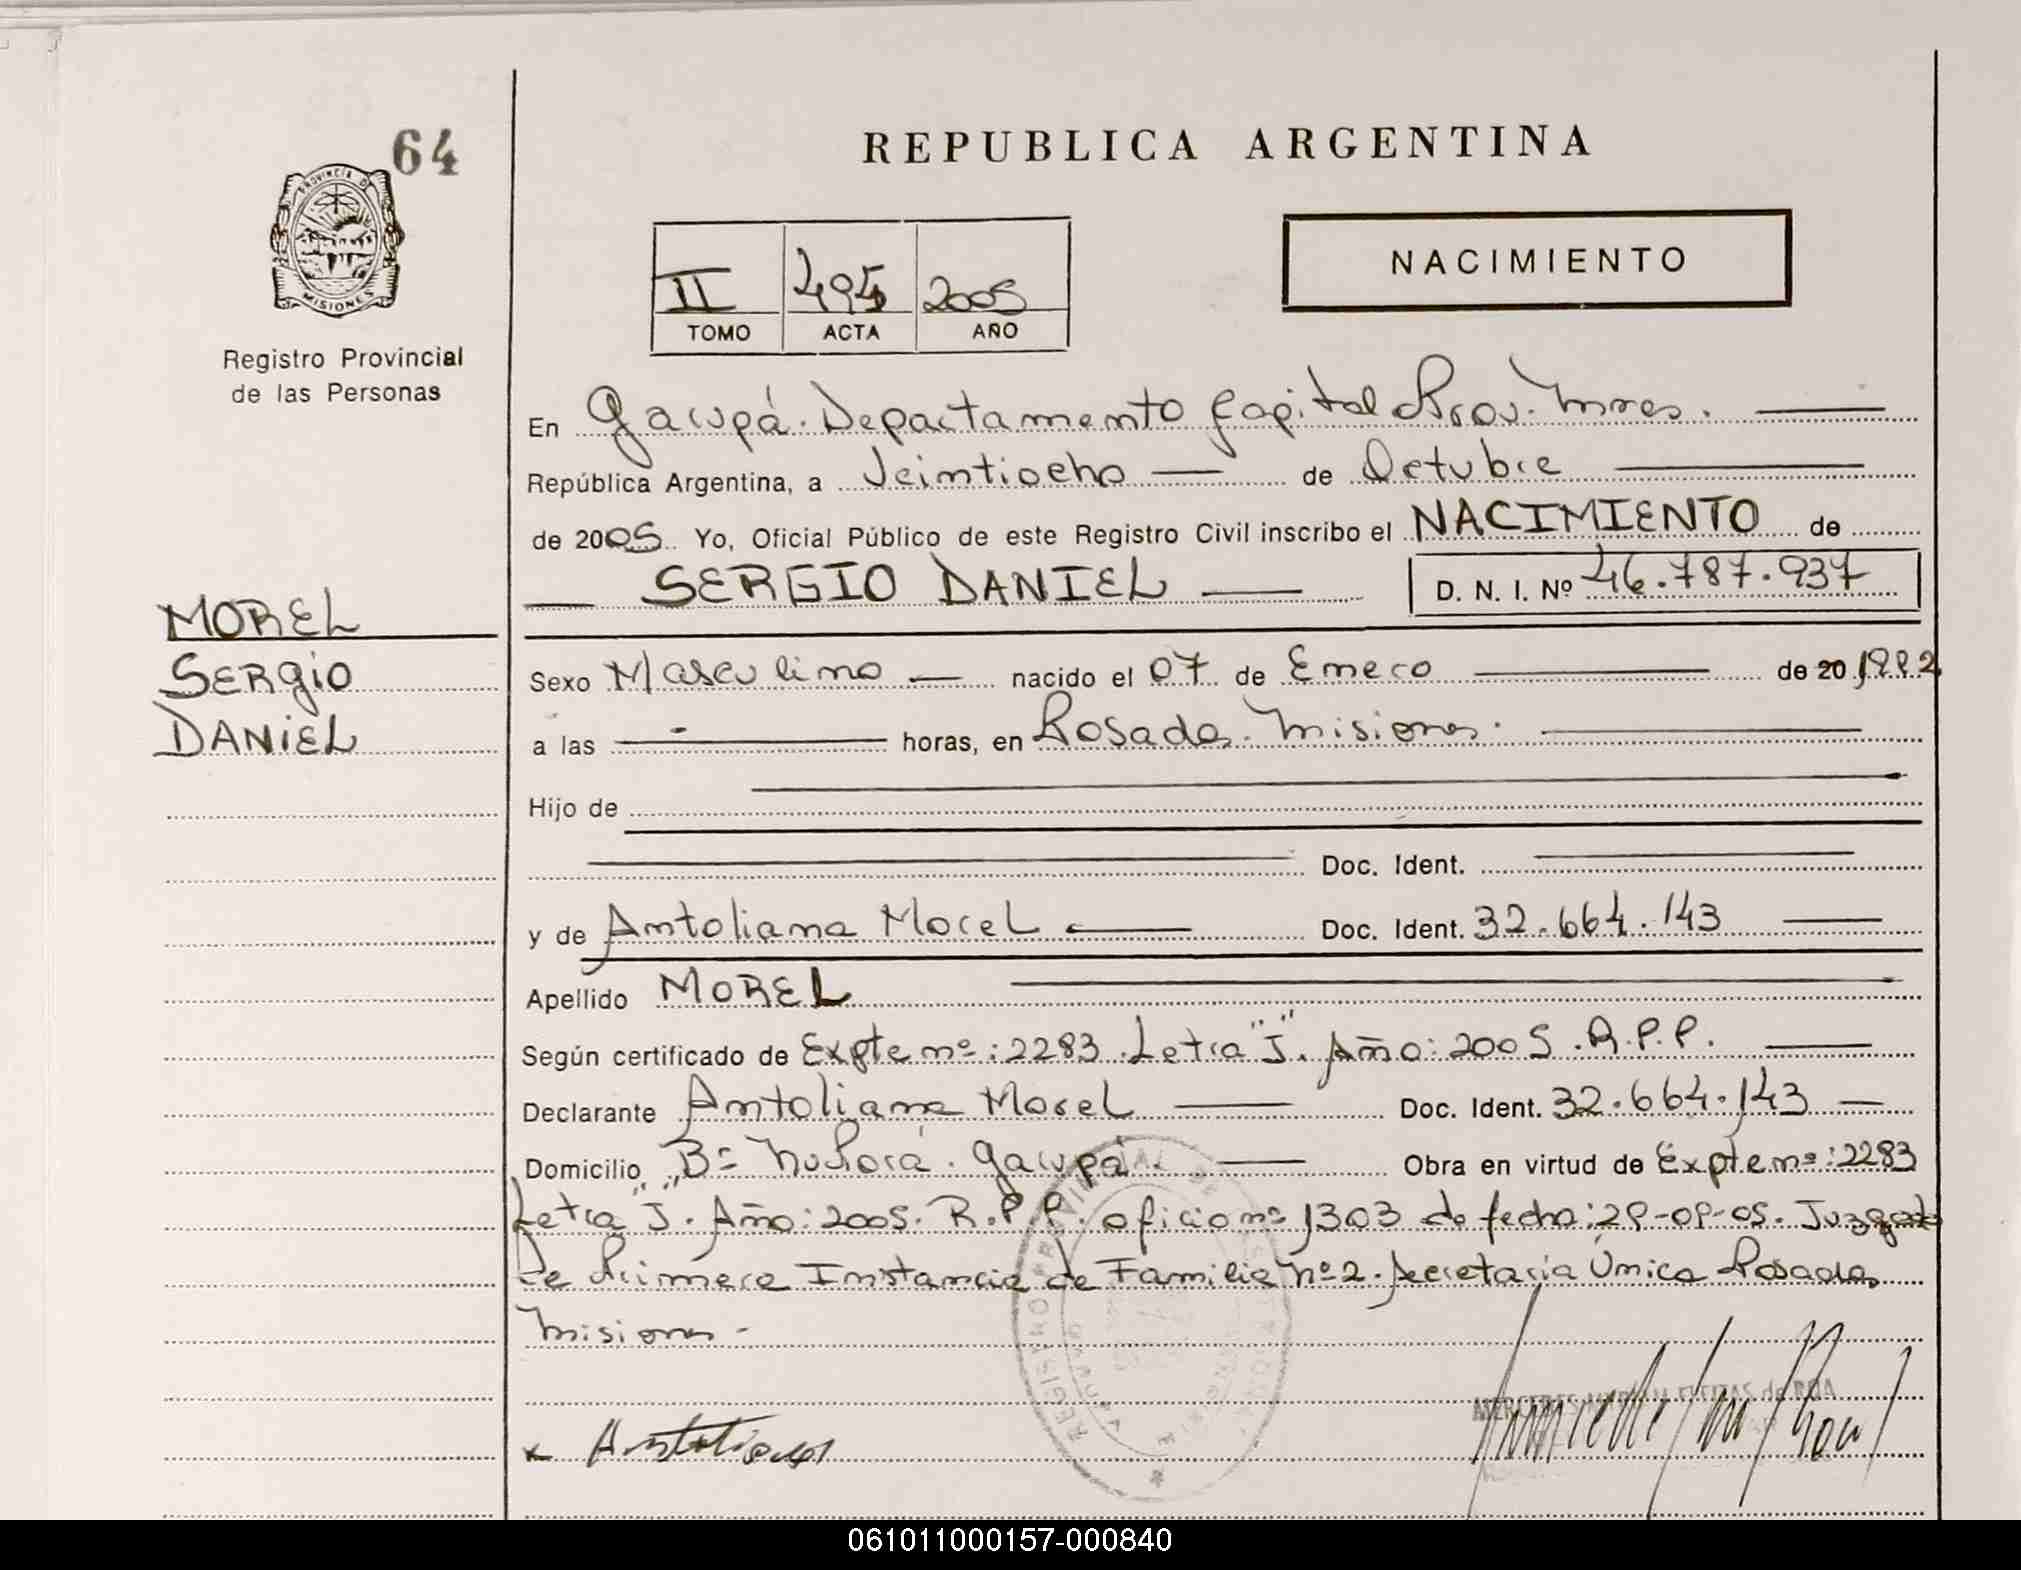 64
PROVINCIA D
MISIONES
Registro Provincial
de las Personas
MOREL
SERGIO
DANIEL
REPUBLICA ARGENTINA
II 495 2005
TOMO ACTA AÑO
NACIMIENTO
En Garupá. Departamento Capital Prov. Mnes.
República Argentina, a Veintiocho de Octubre
de 2005 Yo, Oficial Público de este Registro Civil inscribo el NACIMIENTO de
SERGIO DANIEL D. N. I. Nº 46.787.937
Sexo Masculino nacido el 07 de Enero de 20 1992
a las - horas, en Posadas. Misiones.
Hijo de
Doc. Ident.
y de Antoliana Morel Doc. Ident. 32.664.143
Apellido MOREL
Según certificado de Expte nº: 2283. Letra "J". Año: 2005. R.P.P.
Declarante Antoliana Morel Doc. Ident. 32.664.143
Domicilio Bº Ñu Porá. Garupá. Obra en virtud de Expte nº: 2283
Letra "J". Año: 2005. R.P.P. oficio nº 1303 de fecha: Juzgado
De Primera Instancia de Familia Nº 2. Secretaria Única Posadas
Misiones -
x
061011000157-000840